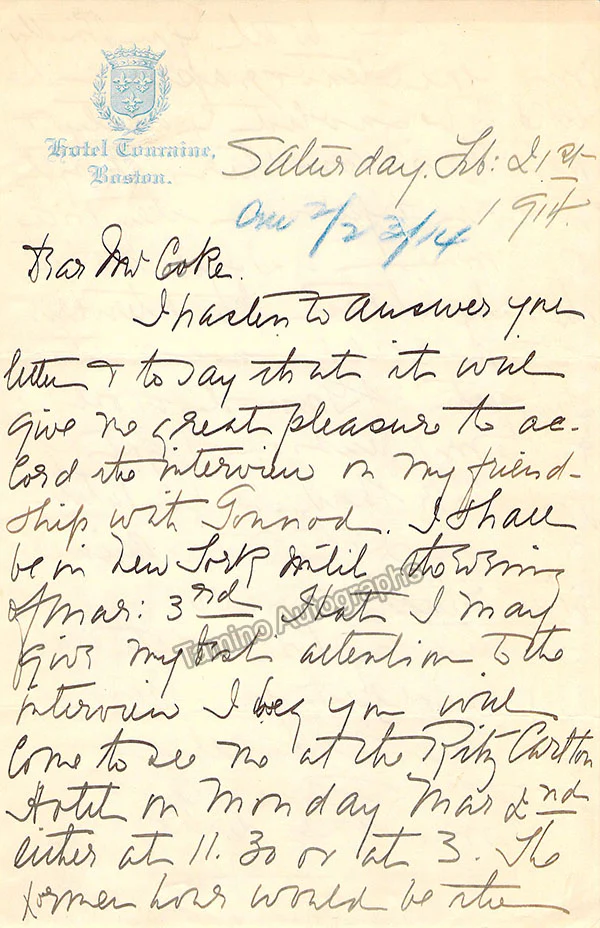 Hotel Touraine,
Boston.
Saturday. Feb: 21st
1914.
Ans 2/23/14
Dear Mr Cooke.
I hasten to answer your
letter & to say that it will
give me great pleasure to ac-
cord the interview on my friend-
ship with Gounod. I shall
be in New York until the evening
of Mar: 3rd That I may
give my best attention to the
interview I beg you will
come to see me at the Ritz Carlton
Hotel on Monday Mar 2nd
either at 11.30 or at 3. The
former hour would be the
Tamino Autographs